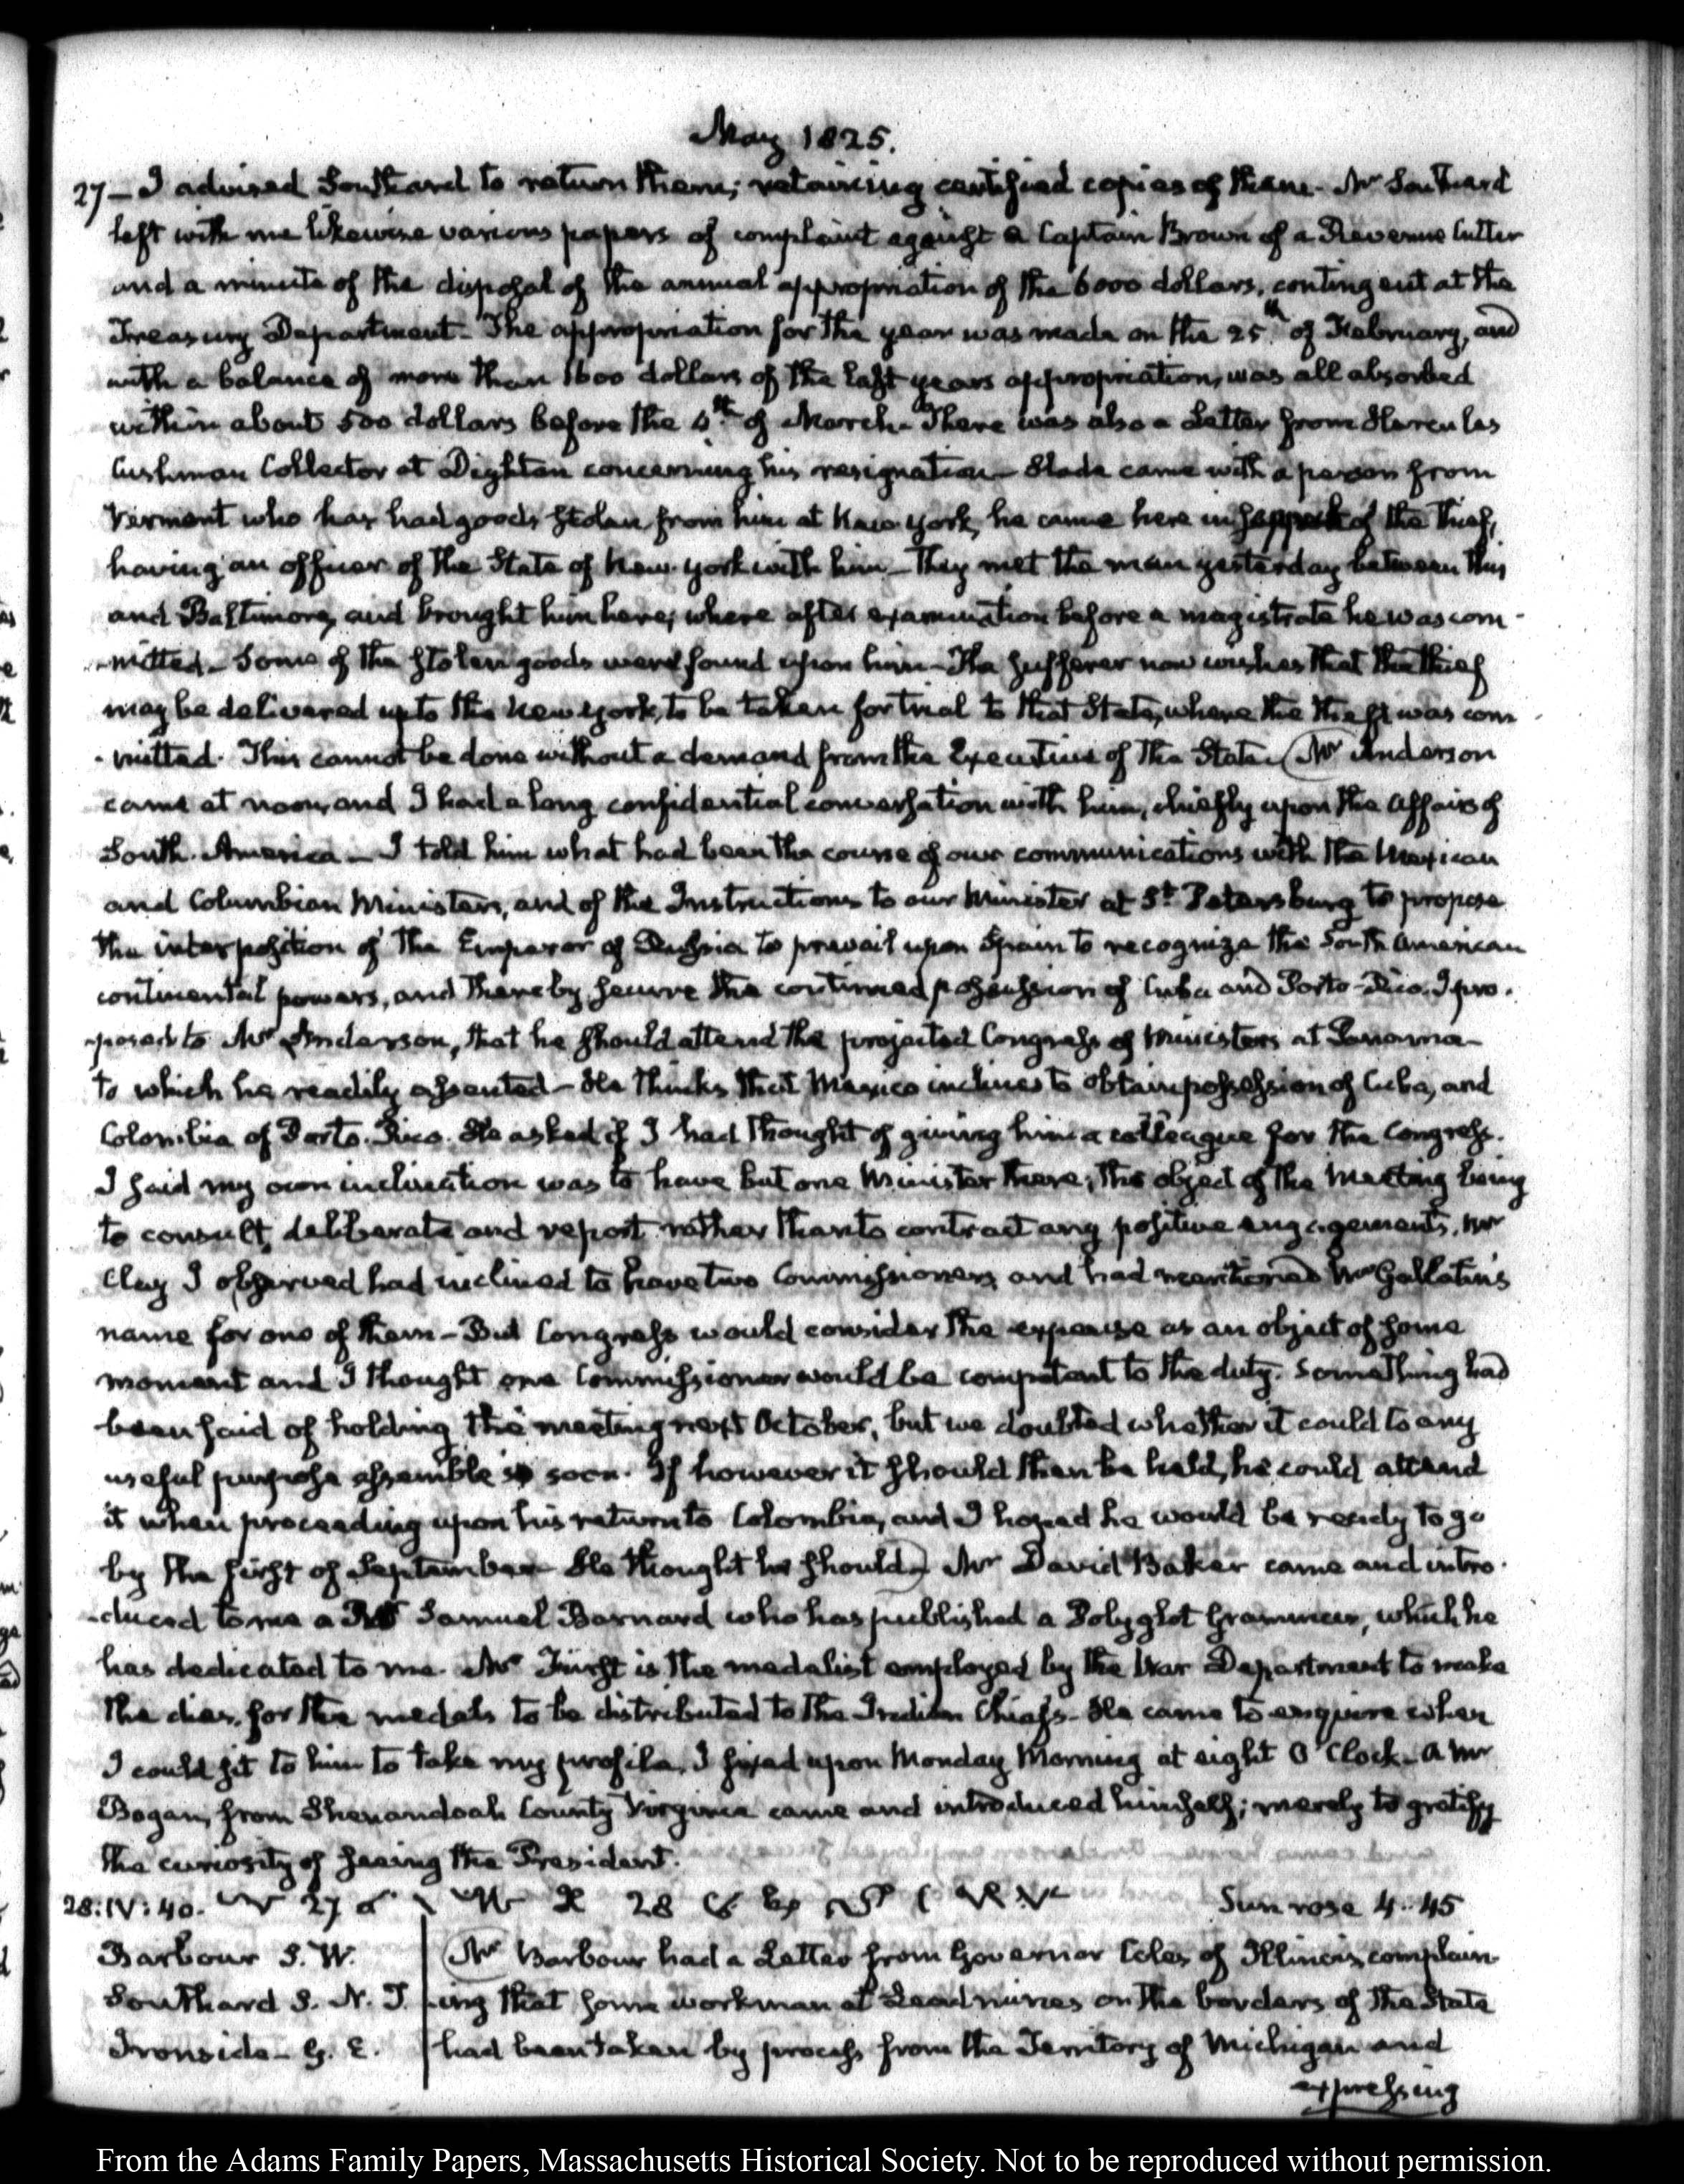 May 1825.
27 — I advised Southard to return them; retaining certified copies of them. Mr Southard
left with me likewise various papers of complaint against a Captain Brown of a Revenue Cutter
and a minute of the disposal of the annual appropriation of the 6000 dollars, contingent at the
Treasury Department. The appropriation for the year was made on the 25th of February, and
with a balance of more than 1600 dollars of the last years appropriation, was all absorbed
within about 500 dollars before the 4th of March. There was also a Letter from Hercules
Cushman Collector at Dighton concerning his resignation — Slade came with a person from
Vermont who has had goods stolen from him at New York, he came here in of the Thief,
having an officer of the State of New-York with him — They met the man yesterday between this
and Baltimore, and brought him here; where after examination before a magistrate he was com-
-mitted. Some of the stolen goods were found upon him — The sufferer now wishes that the thief
may be delivered up to the New York, to be taken for trial to that State, where the theft was com-
-mitted. This cannot be done without a demand from the Executive of the State. (Mr Anderson
came at noon, and I had a long confidential conversation with him, chiefly upon the affairs of
South-America — I told him what had been the course of our communications with the Mexican
and Columbian Ministers, and of the Instructions to our Minister at St. Petersburg to propose
the interposition of the Emperor of Russia to prevail upon Spain to recognize the South American
continental powers, and thereby secure the continued possession of Cuba and Porto-Rico. I pro-
-posed to Mr Anderson, that he should attend the projected Congress of Ministers at Panama —
to which he readily assented — He thinks that Mexico inclines to obtain possession of Cuba, and
Colombia of Porto-Rico. He asked if I had thought of giving him a colleague for the Congress.
I said my own inclination was to have but one Minister there; the object of the Meeting being
to consult, deliberate and report rather than to contract any positive engagements. Mr
Clay I observed had inclined to have two Commissioners, and had mentioned Mr Gallatin's
name for one of them — But Congress would consider the expense as an object of some
moment and I thought one Commissioner would be competent to the duty. Something had
been said of holding the meeting next October, but we doubted whether it could to any
useful purpose assemble so soon. If however it should then be held, he could attend
it when proceeding upon his return to Colombia, and I hoped he would be ready to go
by the first of September — He thought he should) Mr David Baker came and intro-
-duced to me a Samuel Barnard who has published a Polyglot Grammar, which he
has dedicated to me. Mr Fürst is the medalist employed by the War Department to make
the dies for the medals to be distributed to the Indian Chiefs. He came to enquire when
I could sit to him to take my profile. I fixed upon Monday Morning at eight O'Clock — a Mr
Bogan, from Shenandoah County Virginia came and introduced himself; merely to gratify
the curiosity of seeing the President.
28: IV: 40. 27 28 Sun rose 4-45
Barbour S. W.
Southard S. N. T.
Ironside — G. E.
(Mr Barbour had a Letter from Governor Coles of Illinois, complain-
-ing that some workmen at Lead mines on the borders of the State
had been taken by process from the Territory of Michigan and
expressing
From the Adams Family Papers, Massachusetts Historical Society. Not to be reproduced without permission.